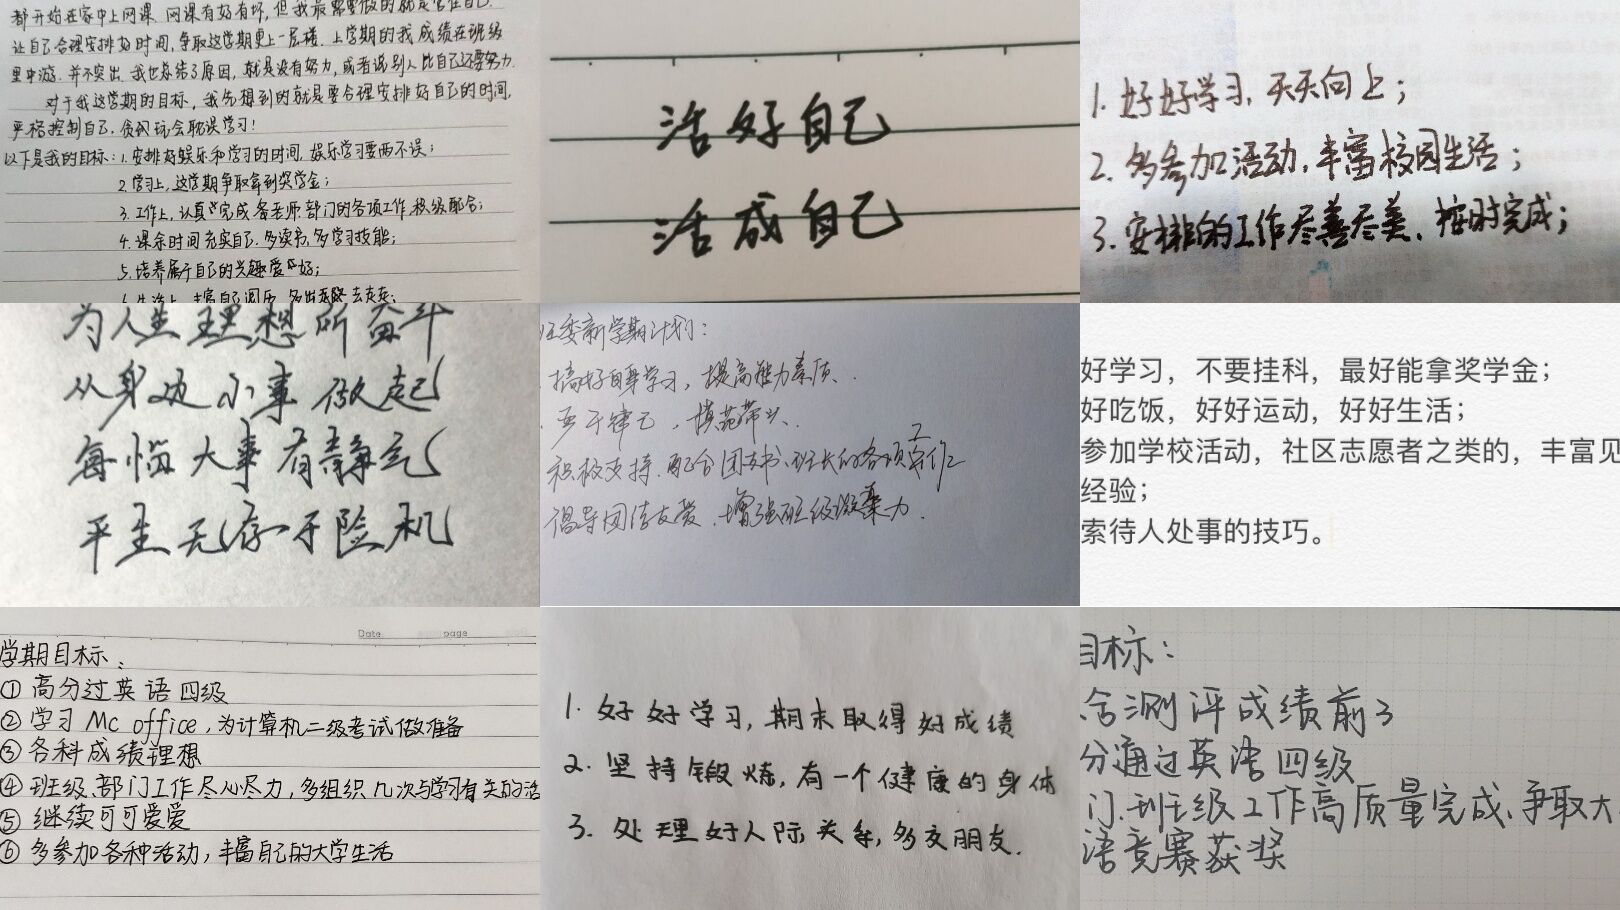 都开始在家中上网课.网课有好有坏,但我最需要做的就是管住自己.
让自己合理安排好时间,争取这学期更上一层楼.上学期的我成绩在班级
里中游.并不突出.我也总结了原因,就是没有努力,或者说别人比自己还要努力.
对于我这学期的目标,我先想到的就是要合理安排好自己的时间,
严格控制自己,贪图玩会耽误学习!
以下是我的目标:1.安排好娱乐和学习的时间,娱乐学习要两不误;
2.学习上,这学期争取拿到奖学金;
3.工作上,认真完成各老师.部门的各项工作,积极配合;
4.课余时间充实自己.多读书,多学习技能;
5.培养属于自己的兴趣爱好;
活好自己
活成自己
1.好好学习,天天向上;
2.多参加活动,丰富校园生活;
3.安排的工作尽善尽美、按时完成;
为人生理想所奋斗
从身边小事做起
每临大事有静气
平生无存于险机
班委新学期计划:
搞好自身学习,提高能力素质.
严于律己,模范带头.
积极支持、配合团支书、班长的各项工作
倡导团结友爱,增强班级凝聚力.
好学习，不要挂科，最好能拿奖学金；
好吃饭，好好运动，好好生活；
参加学校活动，社区志愿者之类的，丰富见
经验；
索待人处事的技巧。
Date page
学期目标:
①高分过英语四级
②学习Mc office,为计算机二级考试做准备
③各科成绩理想
④班级、部门工作尽心尽力,多组织几次与学习有关的活
⑤继续可可爱爱
⑥多参加各种活动,丰富自己的大学生活
1.好好学习,期末取得好成绩
2.坚持锻炼,有一个健康的身体
3.处理好人际关系,多交朋友.
目标:
合测评成绩前3
分通过英语四级
门.班级工作高质量完成、争取大
语竞赛获奖